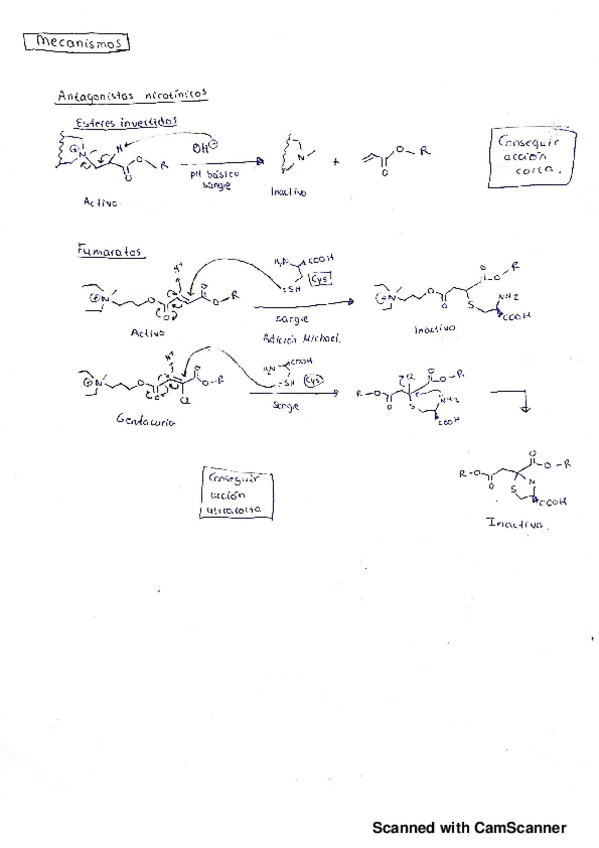 Mecanismos
Antagonistas nicotínicos
Esteres invertidos
OH⊖
pH básico
sangre
Activo
Inactivo
+
Conseguir
acción
corta.
Fumaratos
H⁺
H₂N COOH
SH Cys
Activo
sangre
Adición Michael.
Inactivo
NH₂
COOH
H⁺
H₂N COOH
SH Cys
Cl
sangre
Gantacurio
NH₂
COOH
Conseguir
acción
ultracorta
COOH
Inactivo.
Scanned with CamScanner